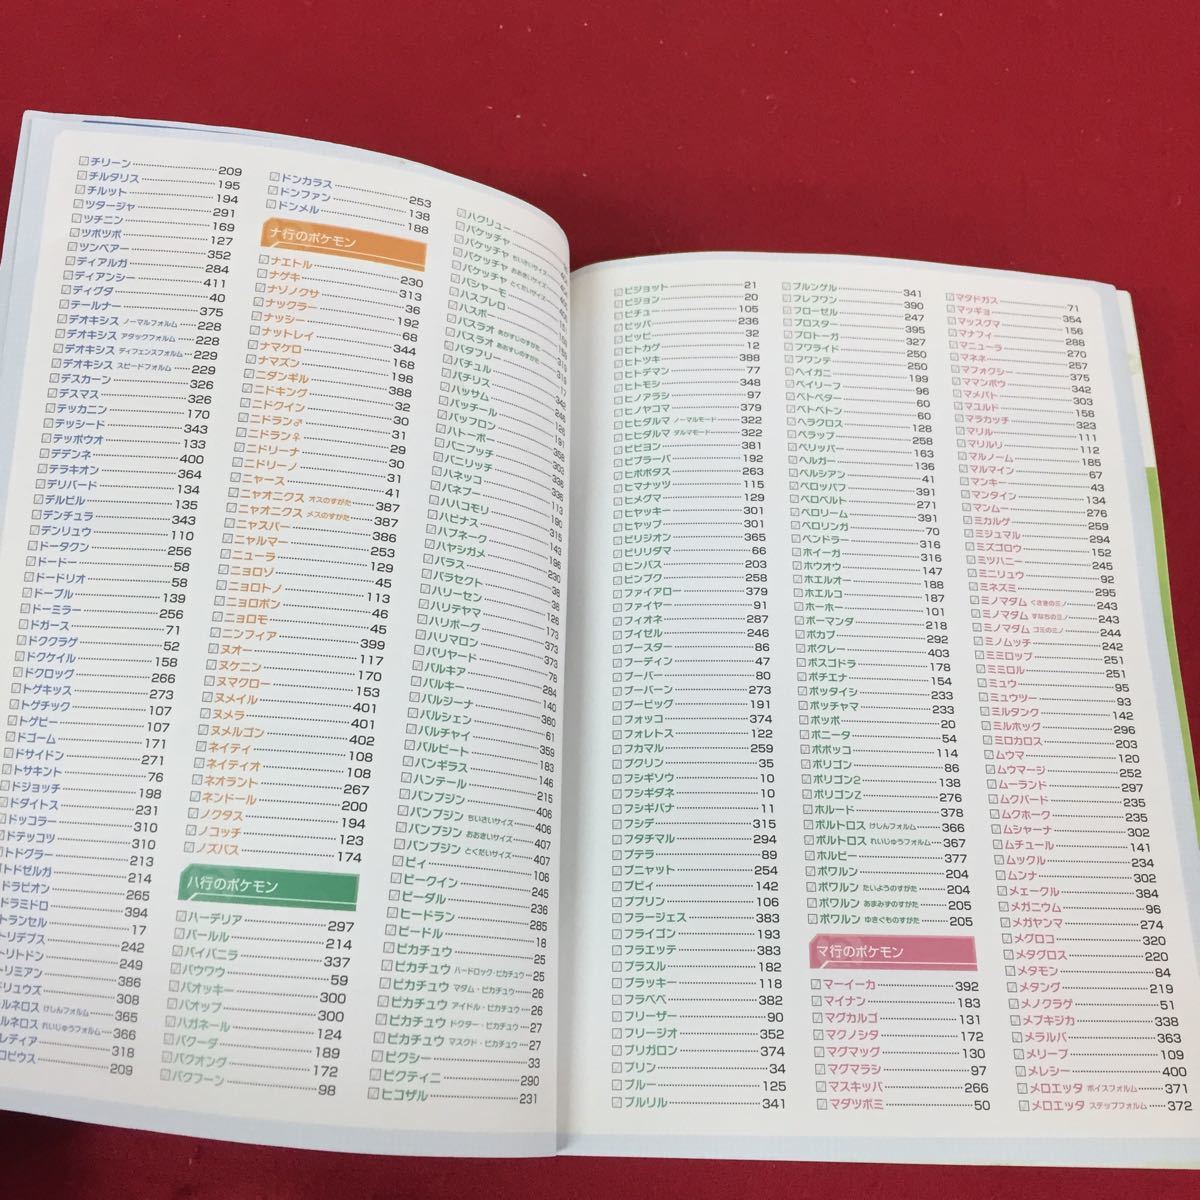 チリーン 209
チルタリス 195
チルット 194
ツタージャ 291
ツチニン 169
ツボツボ 127
ツンベアー 352
ディアルガ 284
ディアンシー 411
ディグダ 40
テールナー 375
デオキシス ノーマルフォルム 228
デオキシス アタックフォルム 228
デオキシス ディフェンスフォルム 229
デオキシス スピードフォルム 229
デスカーン 326
デスマス 326
テッカニン 170
テッシード 343
テッポウオ 133
デデンネ 400
テラキオン 364
デリバード 134
デルビル 135
デンチュラ 343
デンリュウ 110
ドータクン 256
ドードー 58
ドードリオ 58
ドーブル 139
ドーミラー 256
ドガース 71
ドククラゲ 52
ドクケイル 158
ドクロッグ 266
トゲキッス 273
トゲチック 107
トゲピー 107
ドゴーム 171
ドサイドン 271
トサキント 76
ドジョッチ 198
ドダイトス 231
ドッコラー 310
ドテッコツ 310
トドグラー 213
トドゼルガ 214
ドラピオン 265
ドラミドロ 394
トランセル 17
トリデプス 242
トリトドン 249
トリミアン 386
ドリュウズ 308
ルネロス けしんフォルム 365
ルネロス れいじゅうフォルム 366
レディア 318
ロピウス 209
ドンカラス 253
ドンファン 138
ドンメル 188
ナ行のポケモン
ナエトル 230
ナゲキ 313
ナゾノクサ 36
ナックラー 192
ナッシー 68
ナットレイ 344
ナマケロ 168
ナマズン 198
ニダンギル 388
ニドキング 32
ニドクイン 30
ニドラン♂ 31
ニドラン♀ 29
ニドリーナ 30
ニドリーノ 31
ニャース 41
ニャオニクス オスのすがた 387
ニャオニクス メスのすがた 387
ニャスパー 386
ニャルマー 253
ニューラ 129
ニョロゾ 45
ニョロトノ 113
ニョロボン 46
ニョロモ 45
ニンフィア 399
ヌオー 117
ヌケニン 170
ヌマクロー 153
ヌメイル 401
ヌメラ 401
ヌメルゴン 402
ネイティ 108
ネイティオ 108
ネオラント 267
ネンドール 200
ノクタス 194
ノコッチ 123
ノズパス 174
ハ行のポケモン
ハーデリア 297
パールル 214
バイバニラ 337
パウワウ 59
バオッキー 300
バオップ 300
ハガネール 124
バクーダ 189
バクオング 172
バクフーン 98
ハクリュー
バケッチャ
バケッチャ ちいさいサイズ
バケッチャ おおきいサイズ
バケッチャ とくだいサイズ
バシャーモ
ハスブレロ
ハスボー
バスラオ あかすじのすがた
バスラオ あおすじのすがた
バタフリー
バチュル
パチリス
ハッサム
パッチール
バッフロン
ハトーボー
バニプッチ
バニリッチ
ハネッコ
バネブー
ハハコモリ
ハピナス
ハブネーク
ハヤシガメ 230
パラス 38
パラセクト 38
ハリーセン 126
ハリテヤマ 173
ハリボーグ 373
ハリマロン 373
バリヤード 78
パルキア 284
バルキー 140
バルジーナ 360
パルシェン 61
バルチャイ 359
バルビート 183
バンギラス 146
ハンテール 215
パンプジン 406
パンプジン ちいさいサイズ 406
パンプジン おおきいサイズ 407
パンプジン とくだいサイズ 407
ピィ 106
ビークイン 245
ビーダル 236
ヒードラン 285
ビードル 18
ピカチュウ 25
ピカチュウ ハードロック・ピカチュウ 25
ピカチュウ マダム・ピカチュウ 26
ピカチュウ アイドル・ピカチュウ 26
ピカチュウ ドクター・ピカチュウ 27
ピカチュウ マスクド・ピカチュウ 27
ピクシー 33
ビクティニ 290
ヒコザル 231
ピジョット 21
ピジョン 20
ピチュー 105
ビッパ 236
ピッピ 32
ヒトカゲ 12
ヒトツキ 388
ヒトデマン 77
ヒトモシ 348
ヒノアラシ 97
ヒノヤコマ 379
ヒヒダルマ ノーマルモード 322
ヒヒダルマ ダルマモード 322
ビビヨン 381
ビブラーバ 192
ヒポポタス 263
ヒマナッツ 115
ヒメグマ 129
ヒヤッキー 301
ヒヤップ 301
ビリジオン 365
ビリリダマ 66
ヒンバス 203
ピンプク 258
ファイアロー 379
ファイヤー 91
フィオネ 287
ブイゼル 246
ブースター 86
フーディン 47
ブーバー 80
ブーバーン 273
ブーピッグ 191
フォッコ 374
フォレトス 122
フカマル 259
プクリン 35
フシギソウ 10
フシギダネ 10
フシギバナ 11
フシデ 315
フタチマル 294
プテラ 89
ブニャット 254
ブビィ 142
ププリン 106
フラージェス 383
フライゴン 193
フラエッテ 383
プラスル 182
ブラッキー 118
フラベベ 382
フリーザー 90
フリージオ 352
ブリガロン 374
プリン 34
ブルー 125
ブルリル 341
ブルンゲル 341
フレフワン 390
フローゼル 247
ブロスター 395
プロトーガ 327
フワライド 250
フワンテ 250
ヘイガニ 199
ベイリーフ 96
ベトベター 60
ベトベトン 60
ヘラクロス 128
ペラップ 258
ペリッパー 163
ヘルガー 136
ペルシアン 41
ペロッパフ 391
ベロベルト 271
ペロリーム 391
ベロリンガ 70
ペンドラー 316
ホイーガ 316
ホウオウ 147
ホエルオー 188
ホエルコ 187
ホーホー 101
ボーマンダ 218
ポカブ 292
ボクレー 403
ボスゴドラ 178
ポチエナ 154
ポッタイシ 233
ポッチャマ 233
ポッポ 20
ポニータ 54
ポポッコ 114
ポリゴン 86
ポリゴン2 138
ポリゴンZ 276
ホルード 378
ボルトロス けしんフォルム 366
ボルトロス れいじゅうフォルム 367
ホルビー 377
ポワルン 204
ポワルン たいようのすがた 204
ポワルン あまみずのすがた 205
ポワルン ゆきぐものすがた 205
マ行のポケモン
マーイーカ 392
マイナン 183
マグカルゴ 131
マクノシタ 172
マグマッグ 130
マグマラシ 97
マスキッパ 266
マダツボミ 50
マタドガス 71
マッギョ 354
マッスグマ 156
マナフィ 288
マニューラ 270
マネネ 257
マフォクシー 375
ママンボウ 342
マメパト 303
マユルド 158
マラカッチ 323
マリル 111
マリルリ 112
マルノーム 185
マルマイン 67
マンキー 43
マンタイン 134
マンムー 276
ミカルゲ 259
ミジュマル 294
ミズゴロウ 152
ミツハニー 245
ミニリュウ 92
ミネズミ 295
ミノマダム くさきのミノ 243
ミノマダム すなちのミノ 243
ミノマダム ゴミのミノ 244
ミノムッチ 242
ミミロップ 251
ミミロル 251
ミュウ 95
ミュウツー 93
ミルタンク 142
ミルホッグ 296
ミロカロス 203
ムウマ 120
ムウマージ 252
ムーランド 297
ムクバード 235
ムクホーク 235
ムシャーナ 302
ムチュール 141
ムックル 234
ムンナ 302
メェークル 384
メガニウム 96
メガヤンマ 274
メグロコ 320
メタグロス 220
メタモン 84
メタング 219
メノクラゲ 51
メブキジカ 338
メラルバ 363
メリープ 109
メレシー 400
メロエッタ ボイスフォルム 371
メロエッタ ステップフォルム 372